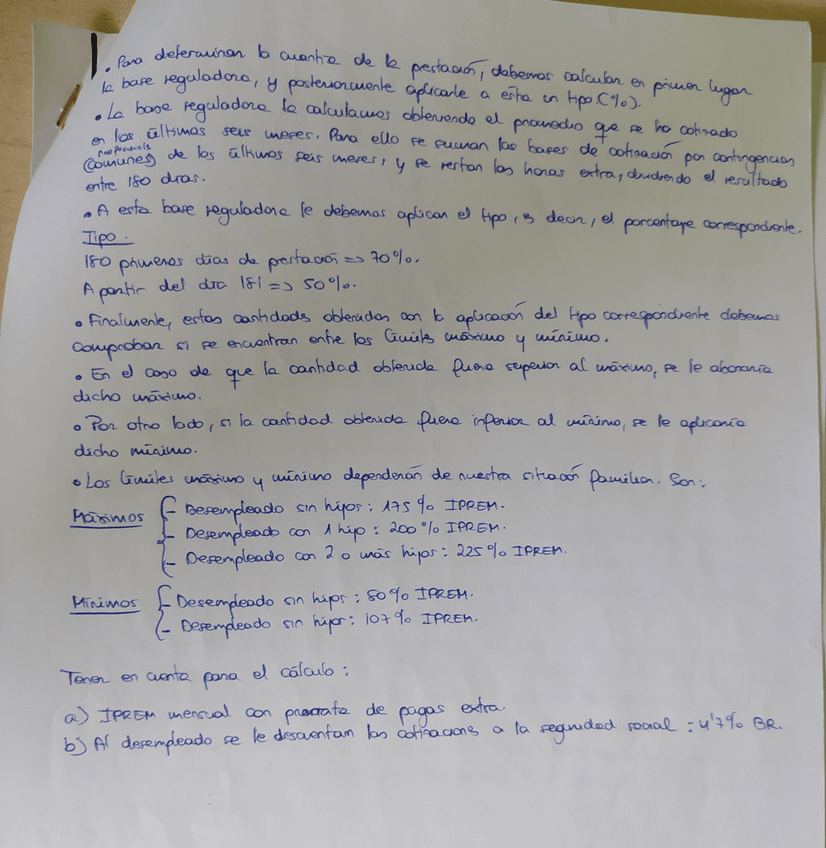 • Para determinar la cuantía de la prestación, debemos calcular en primer lugar
la base reguladora, y posteriormente aplicarle a esta un tipo (%).
• La base reguladora la calculamos obteniendo el promedio que se ha cotizado
en los últimos seis meses. Para ello se suman las bases de cotización por contingencias
(comunes) de los últimos seis meses, y se restan las horas extra, dividiendo el resultado
entre 180 días.
• A esta base reguladora le debemos aplicar el tipo, es decir, el porcentaje correspondiente.
Tipo.
180 primeros días de prestación => 70%.
A partir del día 181 => 50%.
• Finalmente, estas cantidades obtenidas con la aplicación del tipo correspondiente debemos
comprobar si se encuentran entre los límites máximo y mínimo.
• En el caso de que la cantidad obtenida fuera superior al máximo, se le abonaría
dicho máximo.
• Por otro lado, si la cantidad obtenida fuera inferior al mínimo, se le aplicaría
dicho mínimo.
• Los límites máximo y mínimo dependerán de nuestra situación familiar. Son:
Máximos
- Desempleado sin hijos: 175% IPREM.
- Desempleado con 1 hijo: 200% IPREM.
- Desempleado con 2 o más hijos: 225% IPREM.
Mínimos
- Desempleado sin hijos: 80% IPREM.
- Desempleado sin hijos: 107% IPREM.
Tener en cuenta para el cálculo:
a) IPREM mensual con prorrata de pagas extra.
b) Al desempleado se le descuentan las cotizaciones a la seguridad social: 4'7% BR.